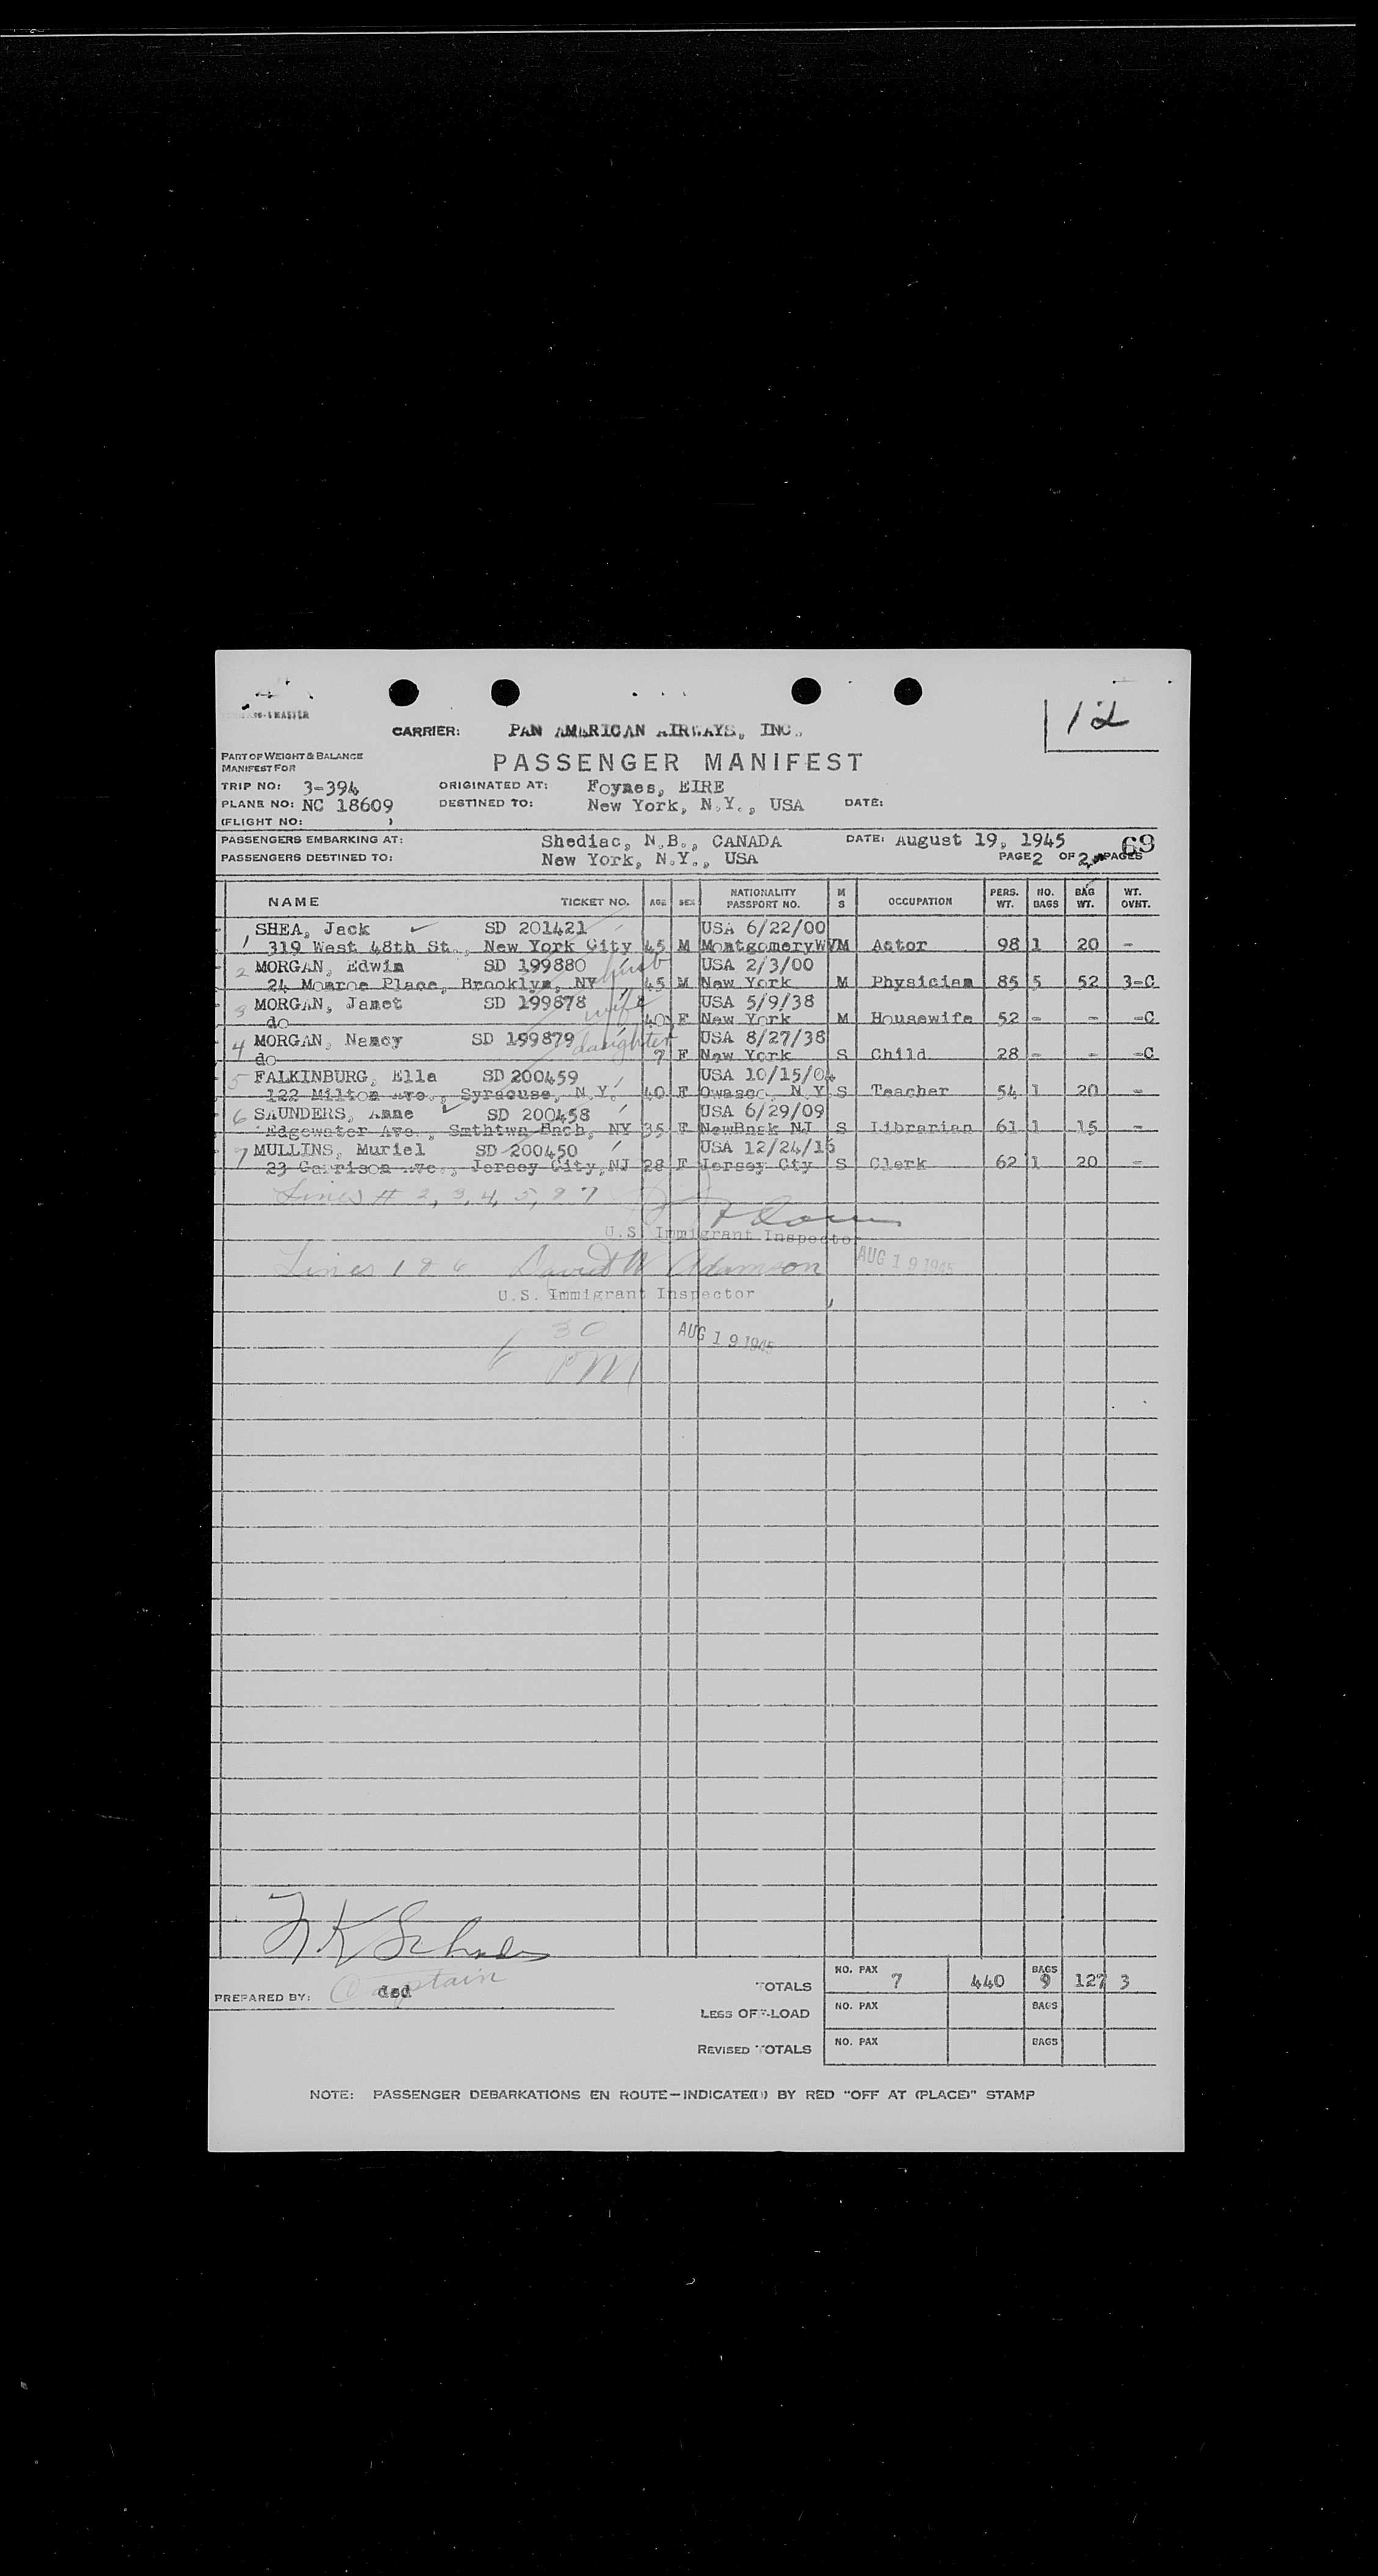 CARRIER: PAN AMERICAN AIRWAYS, INC.
12
PART OF WEIGHT & BALANCE
MANIFEST FOR
PASSENGER MANIFEST
TRIP NO: 3-394 ORIGINATED AT: Foynes, EIRE
PLANE NO: NC 18609 DESTINED TO: New York, N.Y., USA DATE:
(FLIGHT NO: )
PASSENGERS EMBARKING AT: Shediac, N.B., CANADA DATE: August 19, 1945 69
PASSENGERS DESTINED TO: New York, N.Y., USA PAGE 2 OF 2 PAGES
NAME TICKET NO. AGE SEX NATIONALITY PASSPORT NO. M S OCCUPATION PERS. WT. NO. BAGS BAG WT. WT. OVHT.
SHEA, Jack SD 201421 USA 6/22/00
1 319 West 48th St., New York City 45 M MontgomeryWV M Actor 98 1 20 -
2 MORGAN, Edwin SD 199880 husb USA 2/3/00
24 Monroe Place, Brooklyn, NY 45 M New York M Physician 85 5 52 3-C
3 MORGAN, Janet SD 199878 wife USA 5/9/38
do 40 F New York M Housewife 52 - - -C
4 MORGAN, Nancy SD 199879 daughter USA 8/27/38
do 7 F New York S Child 28 - - -C
5 FALKINBURG, Ella SD 200459 USA 10/15/04
122 Milton Ave., Syracuse, N.Y. 40 F Owasco, N.Y. S Teacher 54 1 20 -
6 SAUNDERS, Anne SD 200458 USA 6/29/09
Edgewater Ave., Smthtwn Bnch, NY 35 F NewBnsk NJ S Librarian 61 1 15 -
7 MULLINS, Muriel SD 200450 USA 12/24/16
23 Garrison Ave., Jersey City, NJ 28 F Jersey Cty S Clerk 62 1 20 -
Lines # 2, 3, 4, 5, & 7
U.S. Immigrant Inspector
Lines 1 & 6 David W Adamson AUG 19 1945
U.S. Immigrant Inspector
6 30 PM AUG 19 1945
Captain
PREPARED BY: ded
TOTALS NO. PAX 7 440 BAGS 9 127 3
LESS OFF-LOAD NO. PAX BAGS
REVISED TOTALS NO. PAX BAGS
NOTE: PASSENGER DEBARKATIONS EN ROUTE—INDICATE(D) BY RED "OFF AT (PLACE)" STAMP